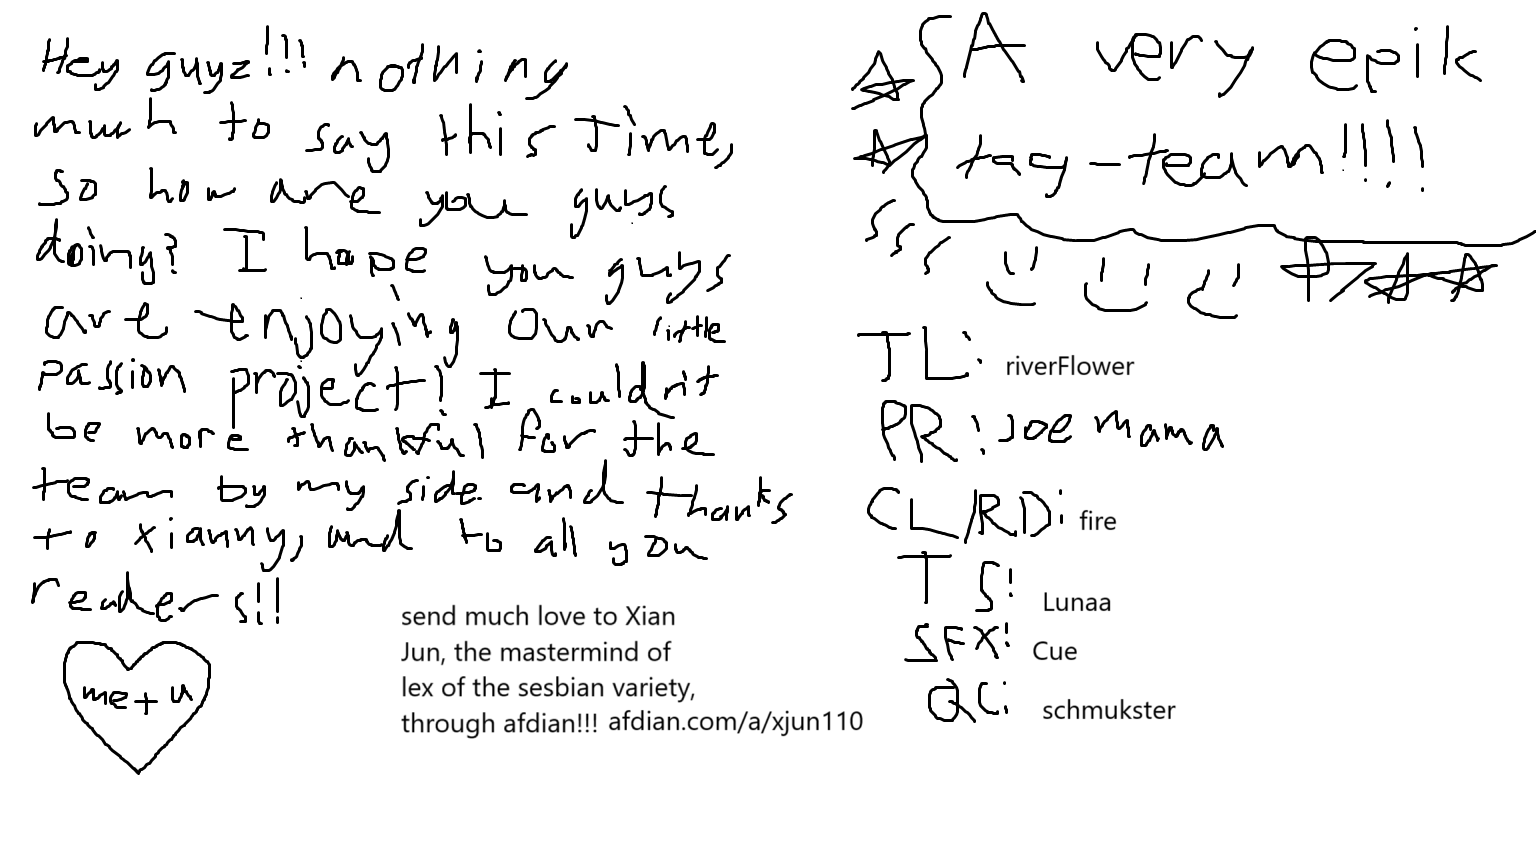 Hey guyz!!! nothing
much to say this Time,
so how are you guys
doing? I hope you guys
are enjoying our little
passion project! I couldn't
be more thankful for the
team by my side and thanks
to xianny, and to all you
readers!!
me + u
send much love to Xian
Jun, the mastermind of
lex of the sesbian variety,
through afdian!!! afdian.com/a/xjun110
A very epik
tag-team!!!!
TL: riverFlower
PR: Joe mama
CL/RD: fire
TS: Lunaa
SFX: Cue
QC: schmukster